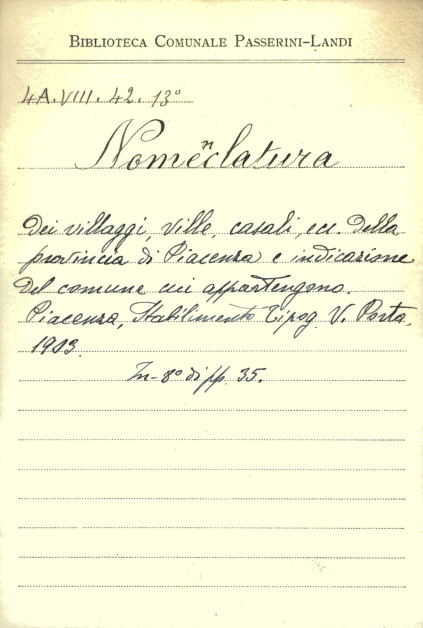 Biblioteca Comunale Passerini-Landi
4A.VIII. 42. 13°
Nomenclatura
Dei villaggi, Ville, casali, ecc. della
provincia di Piacenza e indicazione
del comune cui appartengono.
Piacenza, Stabilimento Tipog. V. Porta,
1903.
In-8° di pp. 35.